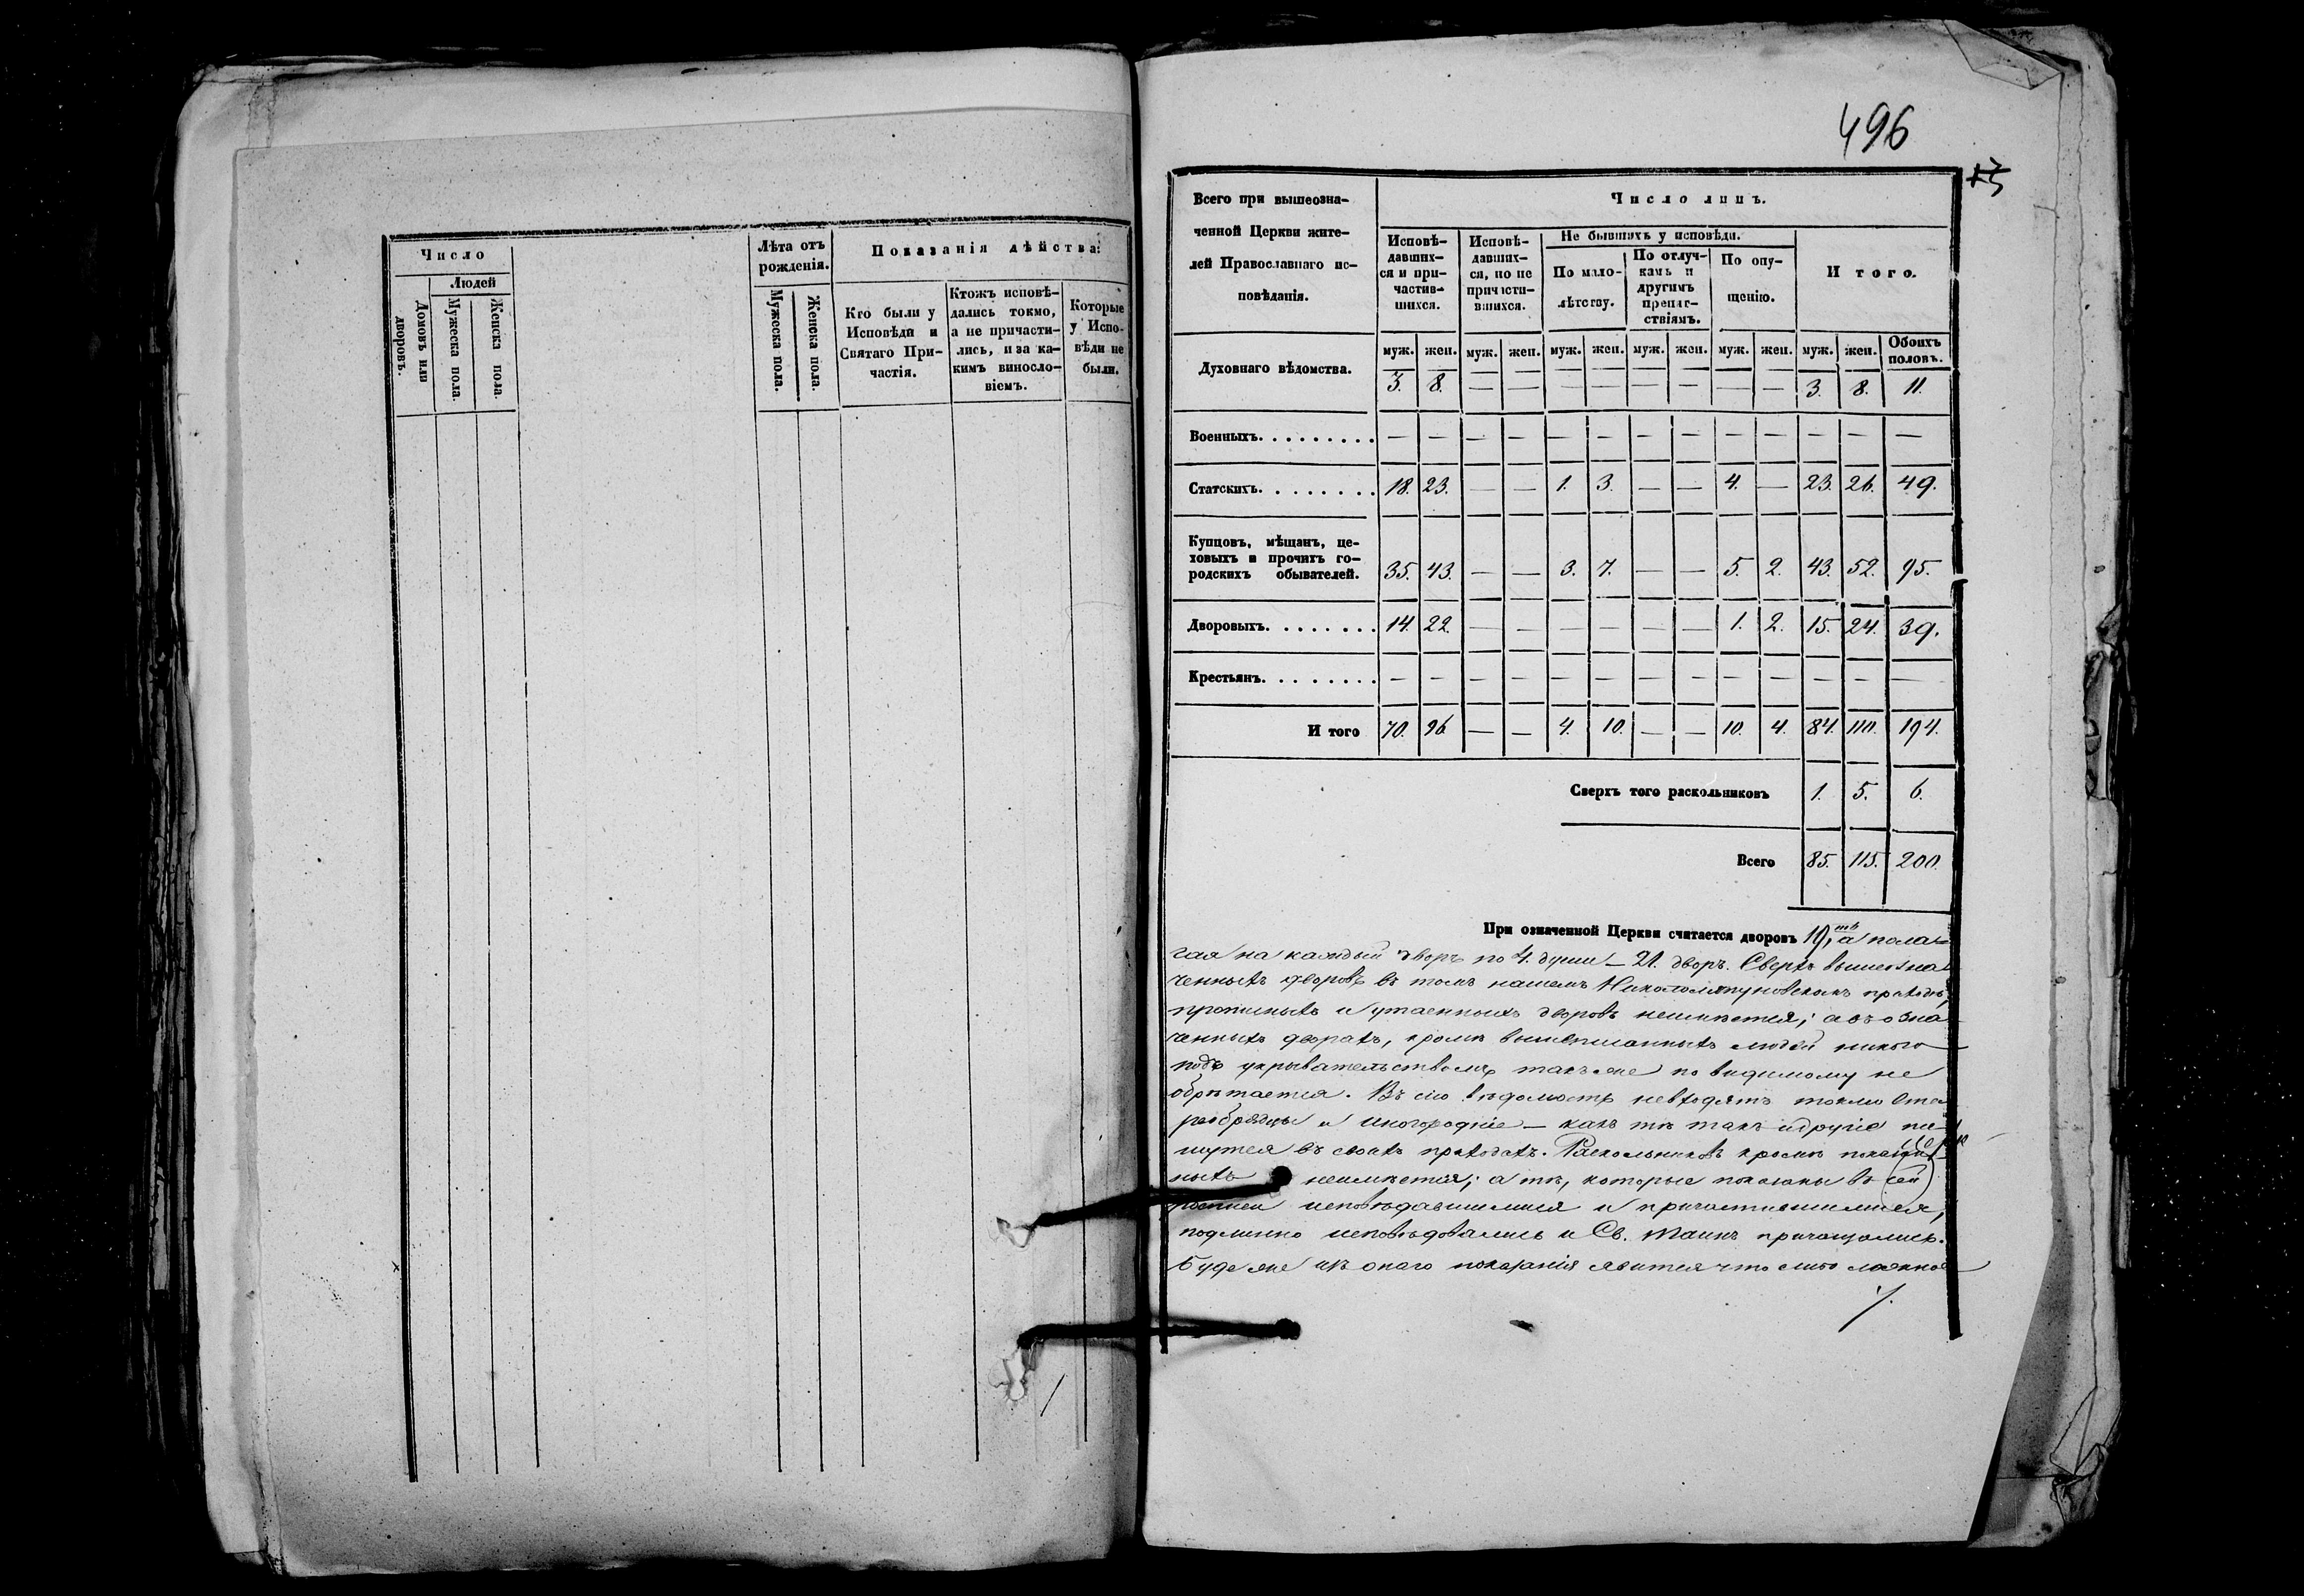 496
13
Число
Людей
Домовъ или дворовъ.
Мужеска пола.
Женска пола.
Лѣта отъ рожденія.
Мужеска пола.
Женска пола.
Показанія дѣйства:
Кто были у
Исповѣди и
Святаго При-
частія.
Ктожъ исповѣ-
дались токмо,
а не причасти-
лись, и за ка-
кимъ винносло-
віемъ.
Которые
у Испо-
вѣди не
были.
Всего при вышеозна-
ченной Церкви жите-
лей Православнаго ис-
повѣданія.
Число лицъ.
Исповѣ-
давших-
ся и при-
частив-
шихся.
Исповѣ-
давших-
ся, но не
причасти-
вшихся.
Не бывшихъ у исповѣди.
По мало-
лѣтству.
По отлуч-
камъ и
другимъ
препят-
ствіямъ.
По опу-
щенію.
И того.
муж. жен. муж. жен. муж. жен. муж. жен. муж. жен. муж. жен. Обоихъ половъ.
Духовнаго вѣдомства. 3. 8. — — — — — — — — 3. 8. 11.
Военныхъ. — — — — — — — — — — — — —
Статскихъ. 18. 23. — — 1. 3. — — 4. — 23. 26. 49.
Купцовъ, мѣщанъ, це-
ховыхъ и прочихъ го-
родскихъ обывателей. 35. 43. — — 3. 7. — — 5. 2. 43. 52. 95.
Дворовыхъ. 14. 22. — — — — — — 1. 2. 15. 24. 39.
Крестьянъ. — — — — — — — — — — — — —
И того 70. 96 — — 4. 10. — — 10. 4. 84. 110. 194.
Сверхъ того раскольниковъ 1. 5. 6.
Всего 85. 115. 200.
При означенной Церкви считается дворовъ 19, а пола-
гая на каждый дворъ по 4. души — 21. дворъ. Сверхъ вышеозна
ченныхъ дворовъ въ томъ нашемъ приходѣ,
прописныхъ и утаенныхъ дворовъ неимѣется; а въ озна
ченныхъ дворахъ, кромѣ вышеписанныхъ людей никого
подъ укрывательствомъ также по видимому не
обрѣтается. Въ сію вѣдомость невходятъ токмо Ста
рообрядцы и иногородніе — какъ тѣ такъ и другіе пи
шутся въ своихъ приходахъ. Раскольниковъ кромѣ показан-
ныхъ неимѣется; а тѣ, которые показаны въ сей
росписи исповѣдавшимися и причастившимися,
подлинно исповѣдовались и Св. Таинъ причащались.
Буде же изъ онаго показанія явится что либо ложное